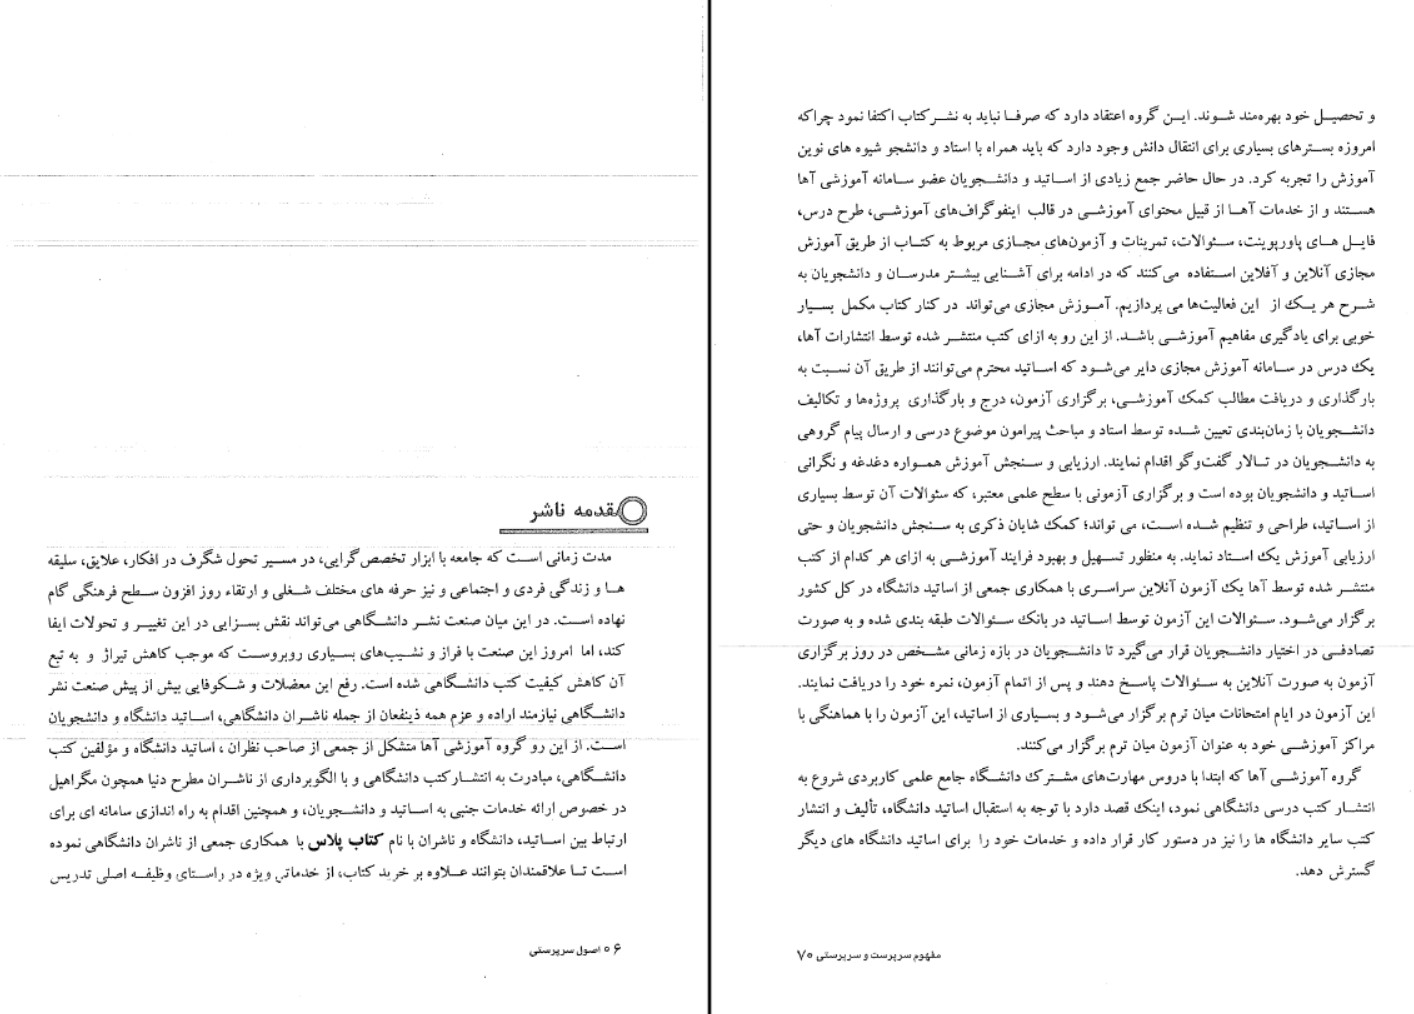 مقدمه ناشر
مدت زمانی است که جامعه با ابزار تخصص‌گرایی، در مسیر تحول شگرف در افکار، علایق، سلیقه
ها و زندگی فردی و اجتماعی و نیز حرفه های مختلف شغلی و ارتقاء روز افزون سطح فرهنگی گام
نهاده است. در این میان صنعت نشر دانشگاهی می‌تواند نقش بسزایی در این تغییر و تحولات ایفا
کند، اما امروز این صنعت با فراز و نشیب‌های بسیاری روبروست که موجب کاهش تیراژ و به تبع
آن کاهش کیفیت کتب دانشگاهی شده است. رفع این معضلات و شکوفایی بیش از پیش صنعت نشر
دانشگاهی نیازمند اراده و عزم همه ذینفعان از جمله ناشران دانشگاهی، اساتید دانشگاه و دانشجویان
است. از این رو گروه آموزشی آها متشکل از جمعی از صاحب نظران ، اساتید دانشگاه و مؤلفین کتب
دانشگاهی، مبادرت به انتشار کتب دانشگاهی و با الگوبرداری از ناشران مطرح دنیا همچون مگراهیل
در خصوص ارائه خدمات جنبی به اساتید و دانشجویان، و همچنین اقدام به راه اندازی سامانه ای برای
ارتباط بین اساتید، دانشگاه و ناشران با نام کتاب پلاس با همکاری جمعی از ناشران دانشگاهی نموده
است تا علاقمندان بتوانند علاوه بر خرید کتاب، از خدماتی ویژه در راستای وظیفه اصلی تدریس
۶ ° اصول سرپرستی
و تحصیل خود بهره‌مند شوند. این گروه اعتقاد دارد که صرفا نباید به نشر کتاب اکتفا نمود چراکه
امروزه بسترهای بسیاری برای انتقال دانش وجود دارد که باید همراه با استاد و دانشجو شیوه های نوین
آموزش را تجربه کرد. در حال حاضر جمع زیادی از اساتید و دانشجویان عضو سامانه آموزشی آها
هستند و از خدمات آها از قبیل محتوای آموزشی در قالب اینفوگراف‌های آموزشی، طرح درس،
فایل های پاورپوینت، سئوالات، تمرینات و آزمون‌های مجازی مربوط به کتاب از طریق آموزش
مجازی آنلاین و آفلاین استفاده می‌کنند که در ادامه برای آشنایی بیشتر مدرسان و دانشجویان به
شرح هر یک از این فعالیت‌ها می پردازیم. آموزش مجازی می‌تواند در کنار کتاب مکمل بسیار
خوبی برای یادگیری مفاهیم آموزشی باشد. از این رو به ازای کتب منتشر شده توسط انتشارات آها،
یک درس در سامانه آموزش مجازی دایر می‌شود که اساتید محترم می‌توانند از طریق آن نسبت به
بارگذاری و دریافت مطالب کمک آموزشی، برگزاری آزمون، درج و بارگذاری پروژه‌ها و تکالیف
دانشجویان با زمان‌بندی تعیین شده توسط استاد و مباحث پیرامون موضوع درسی و ارسال پیام گروهی
به دانشجویان در تالار گفت‌وگو اقدام نمایند. ارزیابی و سنجش آموزش همواره دغدغه و نگرانی
اساتید و دانشجویان بوده است و برگزاری آزمونی با سطح علمی معتبر، که سئوالات آن توسط بسیاری
از اساتید، طراحی و تنظیم شده است، می تواند؛ کمک شایان ذکری به سنجش دانشجویان و حتی
ارزیابی آموزش یک استاد نماید. به منظور تسهیل و بهبود فرایند آموزشی به ازای هر کدام از کتب
منتشر شده توسط آها یک آزمون آنلاین سراسری با همکاری جمعی از اساتید دانشگاه در کل کشور
برگزار می‌شود. سئوالات این آزمون توسط اساتید در بانک سئوالات طبقه بندی شده و به صورت
تصادفی در اختیار دانشجویان قرار می‌گیرد تا دانشجویان در بازه زمانی مشخص در روز برگزاری
آزمون به صورت آنلاین به سئوالات پاسخ دهند و پس از اتمام آزمون، نمره خود را دریافت نمایند.
این آزمون در ایام امتحانات میان ترم برگزار می‌شود و بسیاری از اساتید، این آزمون را با هماهنگی با
مراکز آموزشی خود به عنوان آزمون میان ترم برگزار می‌کنند.
گروه آموزشی آها که ابتدا با دروس مهارت‌های مشترک دانشگاه جامع علمی کاربردی شروع به
انتشار کتب درسی دانشگاهی نمود، اینک قصد دارد با توجه به استقبال اساتید دانشگاه، تألیف و انتشار
کتب سایر دانشگاه ها را نیز در دستور کار قرار داده و خدمات خود را برای اساتید دانشگاه های دیگر
گسترش دهد.
مفهوم سرپرست و سرپرستی ° ۷